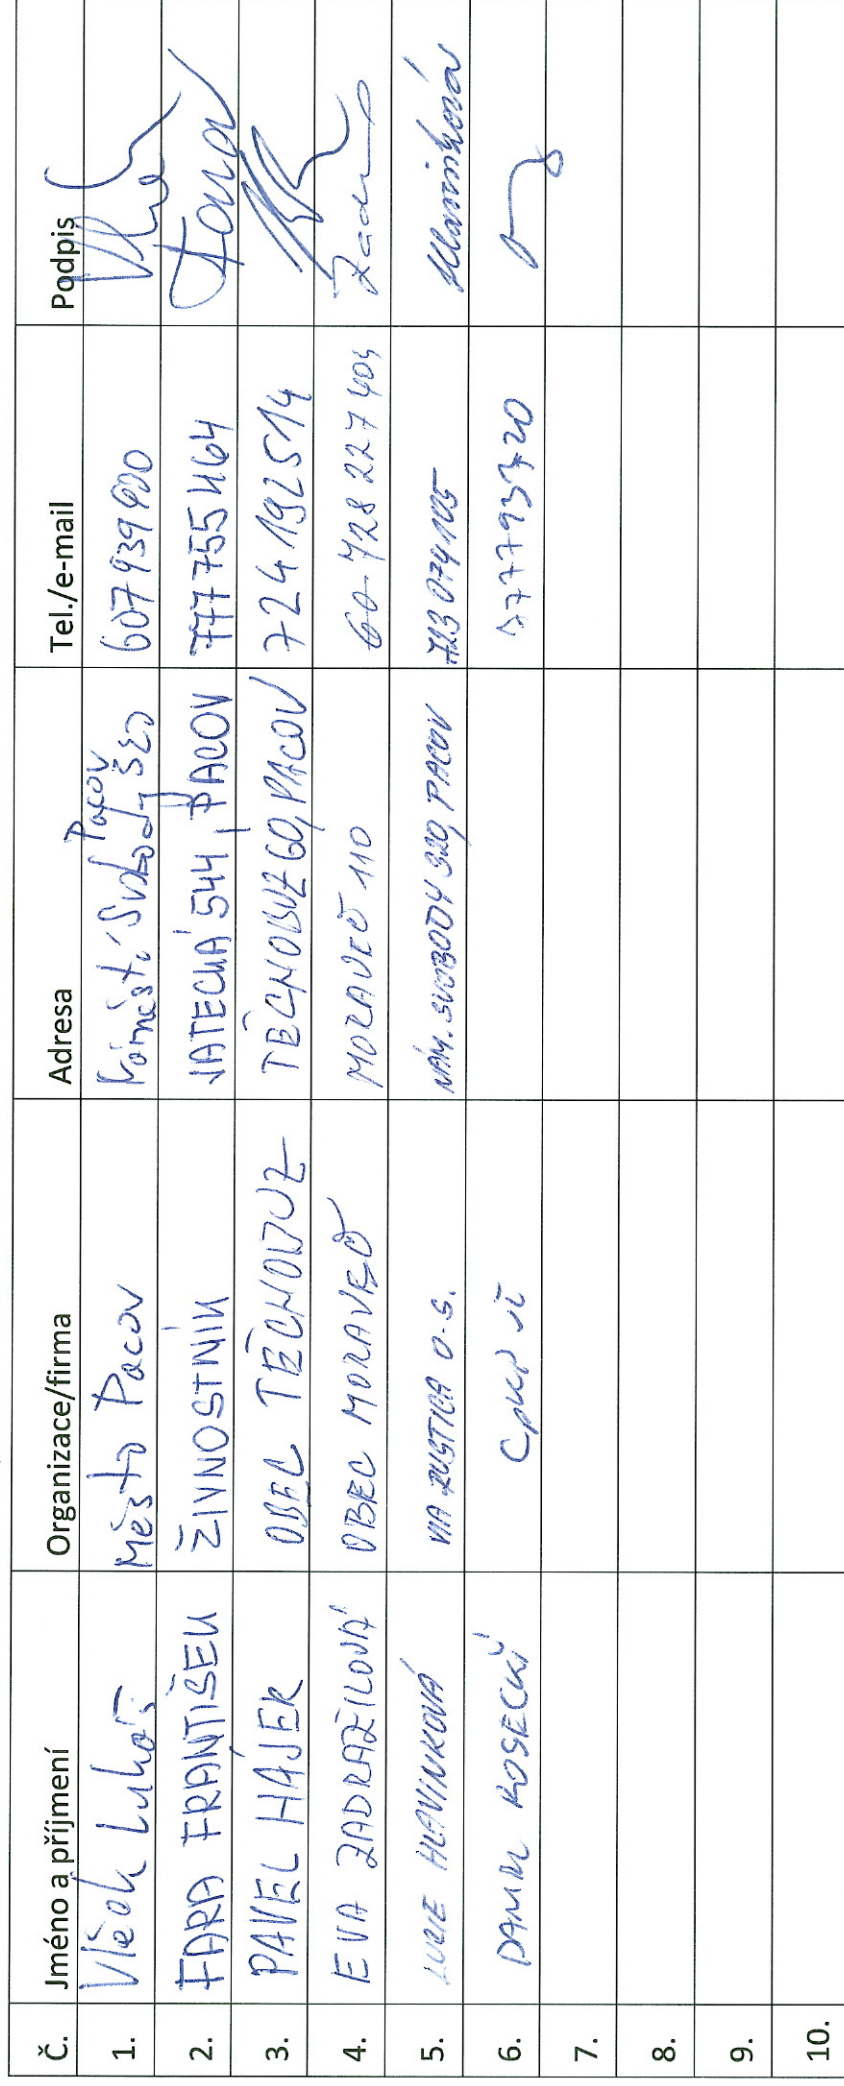 Č. Jméno a příjmení Organizace/firma Adresa Tel./e-mail Podpis
1. Vlček Lukáš Město Pacov Náměstí Svobody 320 Pacov 607939400
2. FARA FRANTIŠEK ŽIVNOSTNÍK JATECKÁ 544, PACOV 777755464
3. PAVEL HÁJEK OBEC TĚCHOBUZ TĚCHOBUZ 60, PACOV 724192514
4. EVA ZADRAŽILOVÁ OBEC MORAVEČ MORAVEČ 110 728 227 404
5. LUCIE HLAVINKOVÁ VIA RUSTICA O.S. NÁM. SVOBODY 320, PACOV 723 074105 Hlavinková
6. DANIEL KOSECKÝ
7.
8.
9.
10.